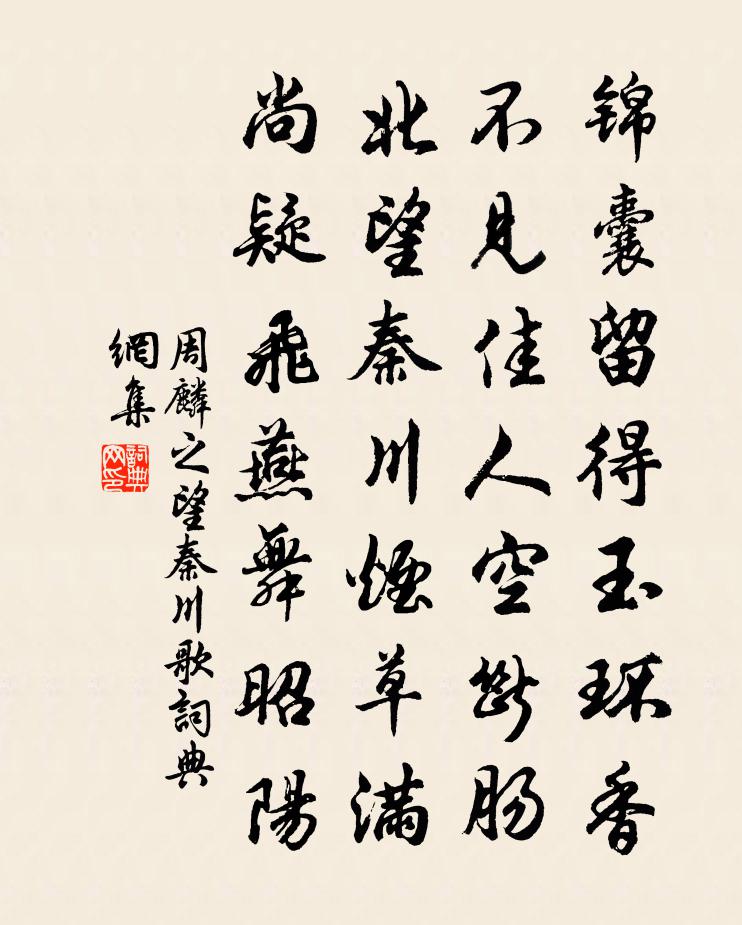 锦囊留得玉环香
不見佳人空斷肠
北望秦川煙草满
尚疑飛燕舞昭陽
周麟之望秦川歌詞典
網集
詞典
网印